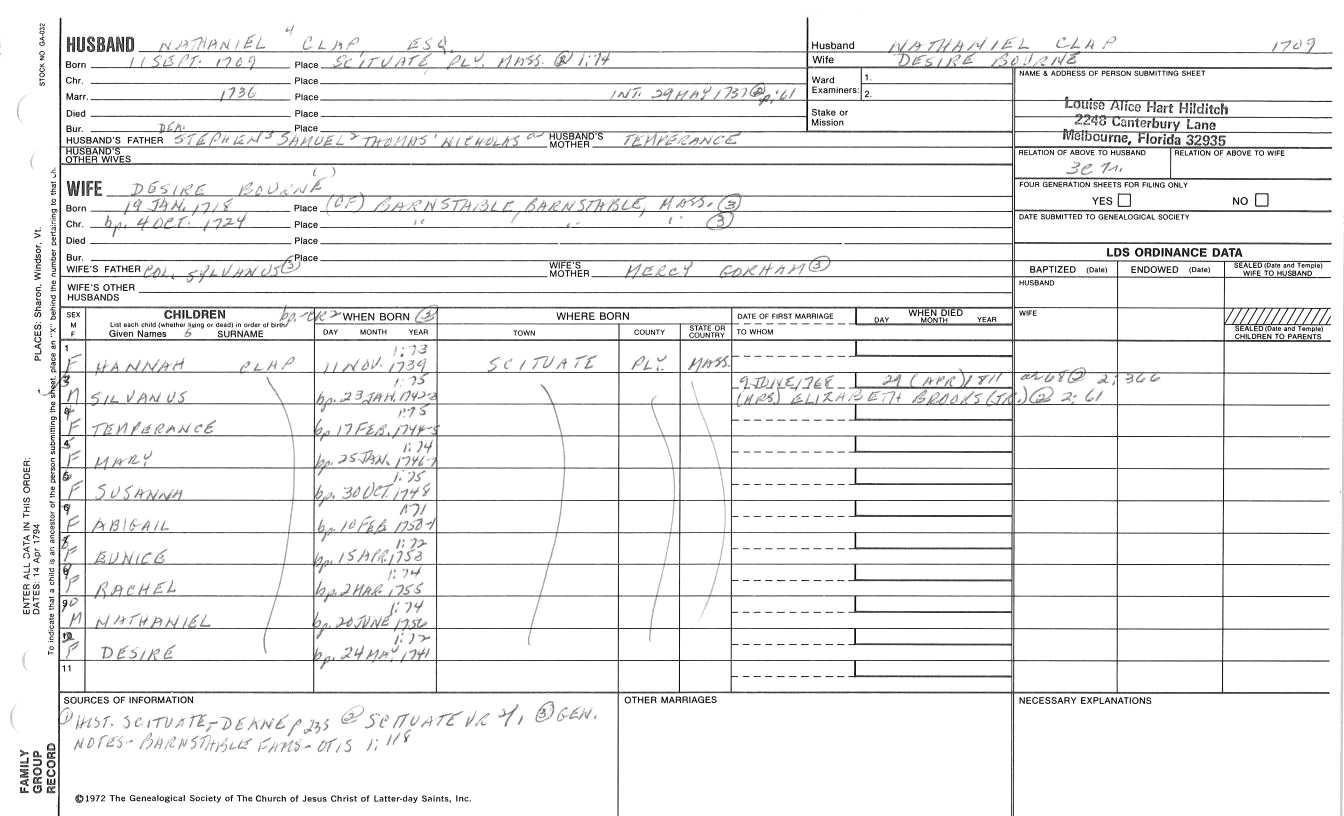 STOCK NO GA-032
HUSBAND NATHANIEL 4 CLAP, ESQ.
Born 11 SEPT. 1709 Place SCITUATE, PLY. MASS. ② 1:74
Chr. Place
Marr. 1736 Place INT. 29 MAY 1737 ② p:61
Died Place
Bur. DEA. Place
HUSBAND'S FATHER STEPHEN 3 SAMUEL 2 THOMAS 1 NICHOLAS HUSBAND'S MOTHER TEMPERANCE
HUSBAND'S OTHER WIVES
WIFE DESIRE BOURNE ( )
Born 19 JAN. 1718 Place (OF) BARNSTABLE, BARNSTABLE, MASS. ③
Chr. bp. 4 OCT. 1724 Place " " " ③
Died Place
Bur. Place
WIFE'S FATHER COL. SYLVANUS ③ WIFE'S MOTHER MERCY GORHAM ③
WIFE'S OTHER HUSBANDS
Husband NATHANIEL CLAP 1709
Wife DESIRE BOURNE
Ward Examiners: 1.
2.
Stake or Mission
NAME & ADDRESS OF PERSON SUBMITTING SHEET
Louise Alice Hart Hilditch
2248 Canterbury Lane
Melbourne, Florida 32935
RELATION OF ABOVE TO HUSBAND RELATION OF ABOVE TO WIFE
3C
FOUR GENERATION SHEETS FOR FILING ONLY
YES NO
DATE SUBMITTED TO GENEALOGICAL SOCIETY
LDS ORDINANCE DATA
BAPTIZED (Date) ENDOWED (Date) SEALED (Date and Temple) WIFE TO HUSBAND
HUSBAND
WIFE
SEALED (Date and Temple) CHILDREN TO PARENTS
SEX M F CHILDREN bp.-CR 2 WHEN BORN ③ WHERE BORN DATE OF FIRST MARRIAGE WHEN DIED
List each child (whether living or dead) in order of birth
Given Names SURNAME DAY MONTH YEAR TOWN COUNTY STATE OR COUNTRY TO WHOM DAY MONTH YEAR
1 1:73
F HANNAH CLAP 11 NOV. 1739 SCITUATE PLY. MASS.
3 1:75 9 JUNE 1768 29 (APR) 1811 ae 68 ② 2:366
M SILVANUS bp. 23 JAN. 1742-3 (MRS) ELIZABETH BROOKS (JR.) ② 2:61
4 1:75
F TEMPERANCE bp 17 FEB. 1744-5
5 1:74
F MARY bp. 25 JAN. 1746-7
6 1:75
F SUSANNA bp. 30 OCT. 1748
1:71
F ABIGAIL bp. 10 FEB 1750-1
8 1:72
F EUNICE bp. 15 APR. 1753
9 1:74
F RACHEL bp. 2 MAR. 1755
10 1:74
M NATHANIEL bp. 20 JUNE 1756
1:72
F DESIRE bp. 24 MAY, 1741
11
SOURCES OF INFORMATION
① HIST. SCITUATE, - DEANE p 235 ② SCITUATE V.R. 2/, ③ GEN.
NOTES - BARNSTABLE FAMS - OTIS 1:118
OTHER MARRIAGES
NECESSARY EXPLANATIONS
©1972 The Genealogical Society of The Church of Jesus Christ of Latter-day Saints, Inc.
FAMILY GROUP RECORD
ENTER ALL DATA IN THIS ORDER:
DATES: 14 Apr 1794
PLACES: Sharon, Windsor, Vt.
To indicate that a child is an ancestor of the person submitting the sheet, place an "X" behind the number pertaining to that